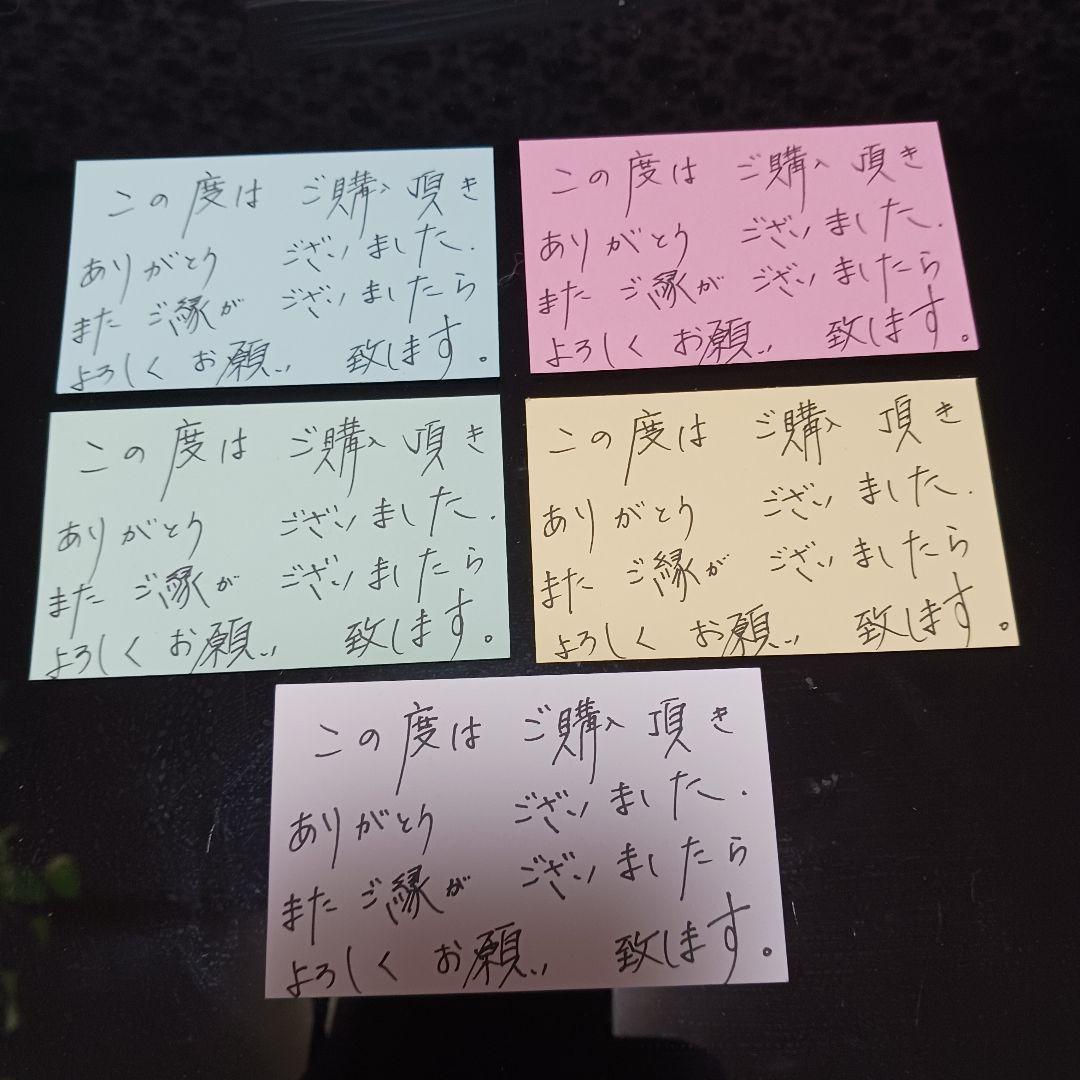 この度は ご購入頂き
ありがとう ございました.
また ご縁が ございましたら
よろしく お願い 致します。
この度は ご購入 頂き
ありがとう ございました.
また ご縁が ございましたら
よろしく お願い 致します。
この度は ご購入頂き
ありがとう ございました.
また ご縁が ございましたら
よろしく お願い 致します。
この度は ご購入 頂き
ありがとう ございました.
また ご縁が ございましたら
よろしく お願い 致します。
この度は ご購入 頂き
ありがとう ございました.
また ご縁が ございましたら
よろしく お願い 致します。